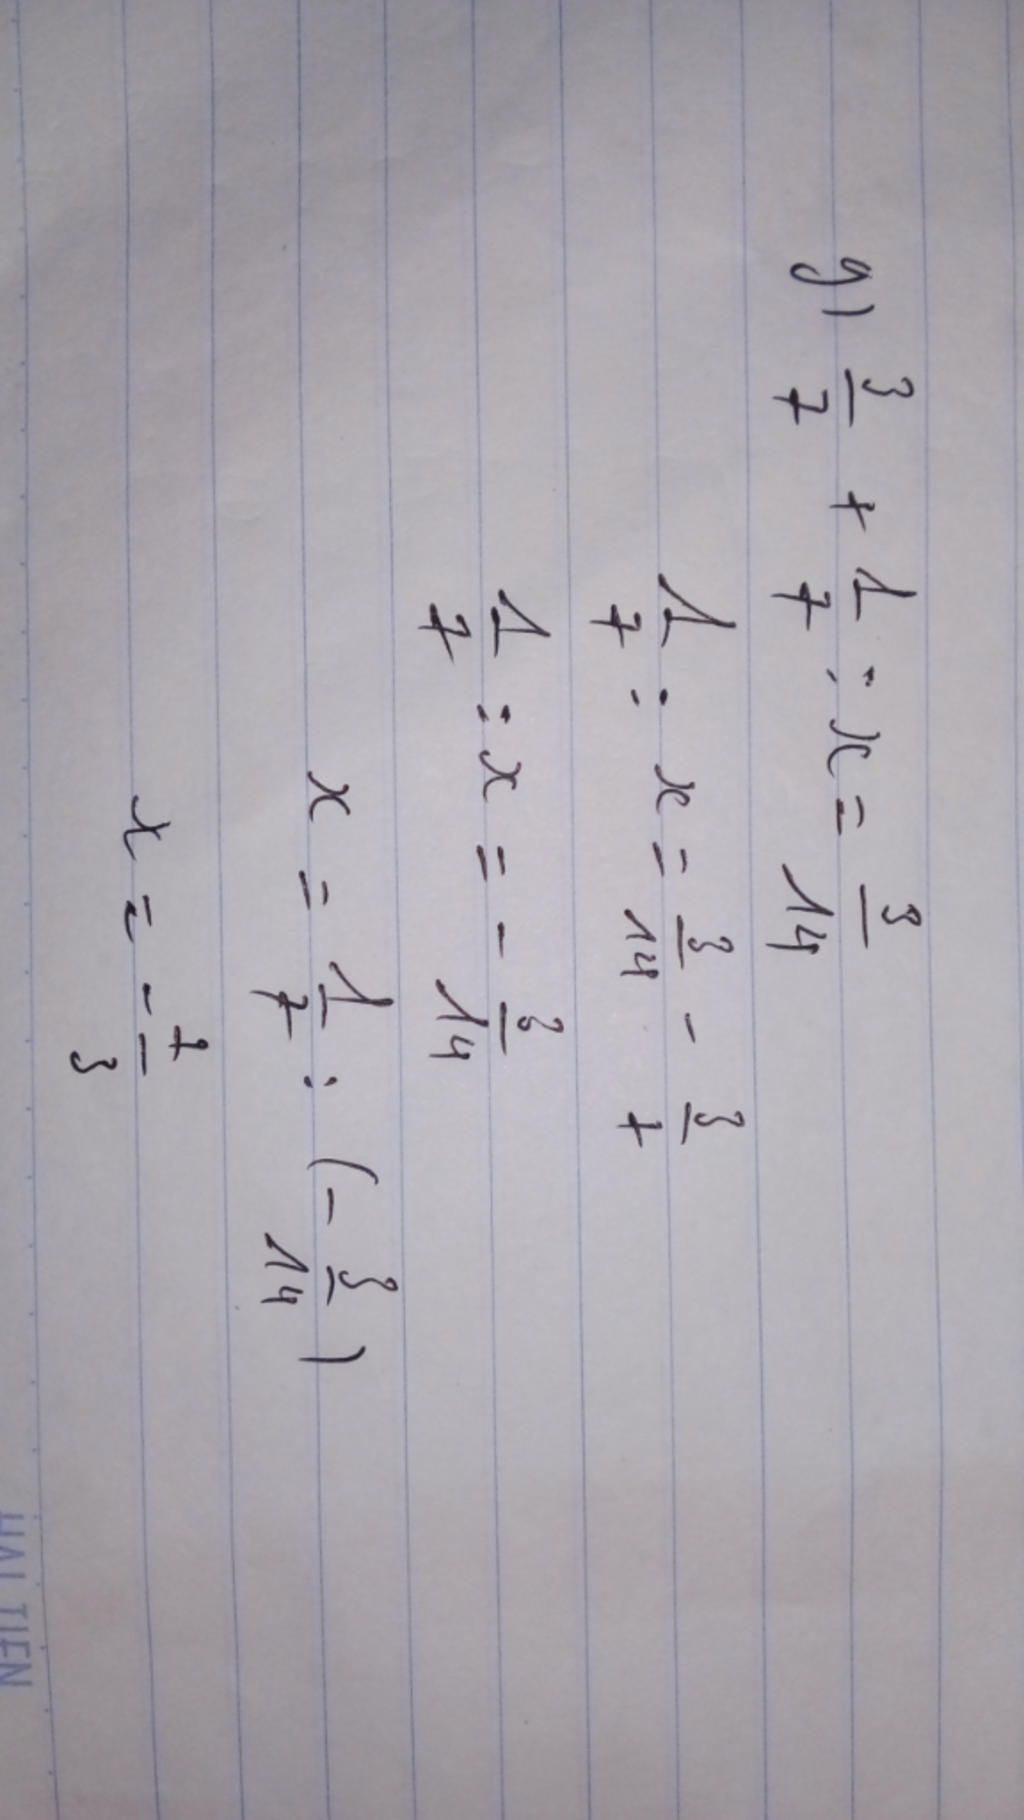 g) 3/7 + 1/7 : x = 3/14
1/7 : x = 3/14 - 3/7
1/7 : x = - 3/14
x = 1/7 : (- 3/14)
x = - 2/3
HẢI TIẾN